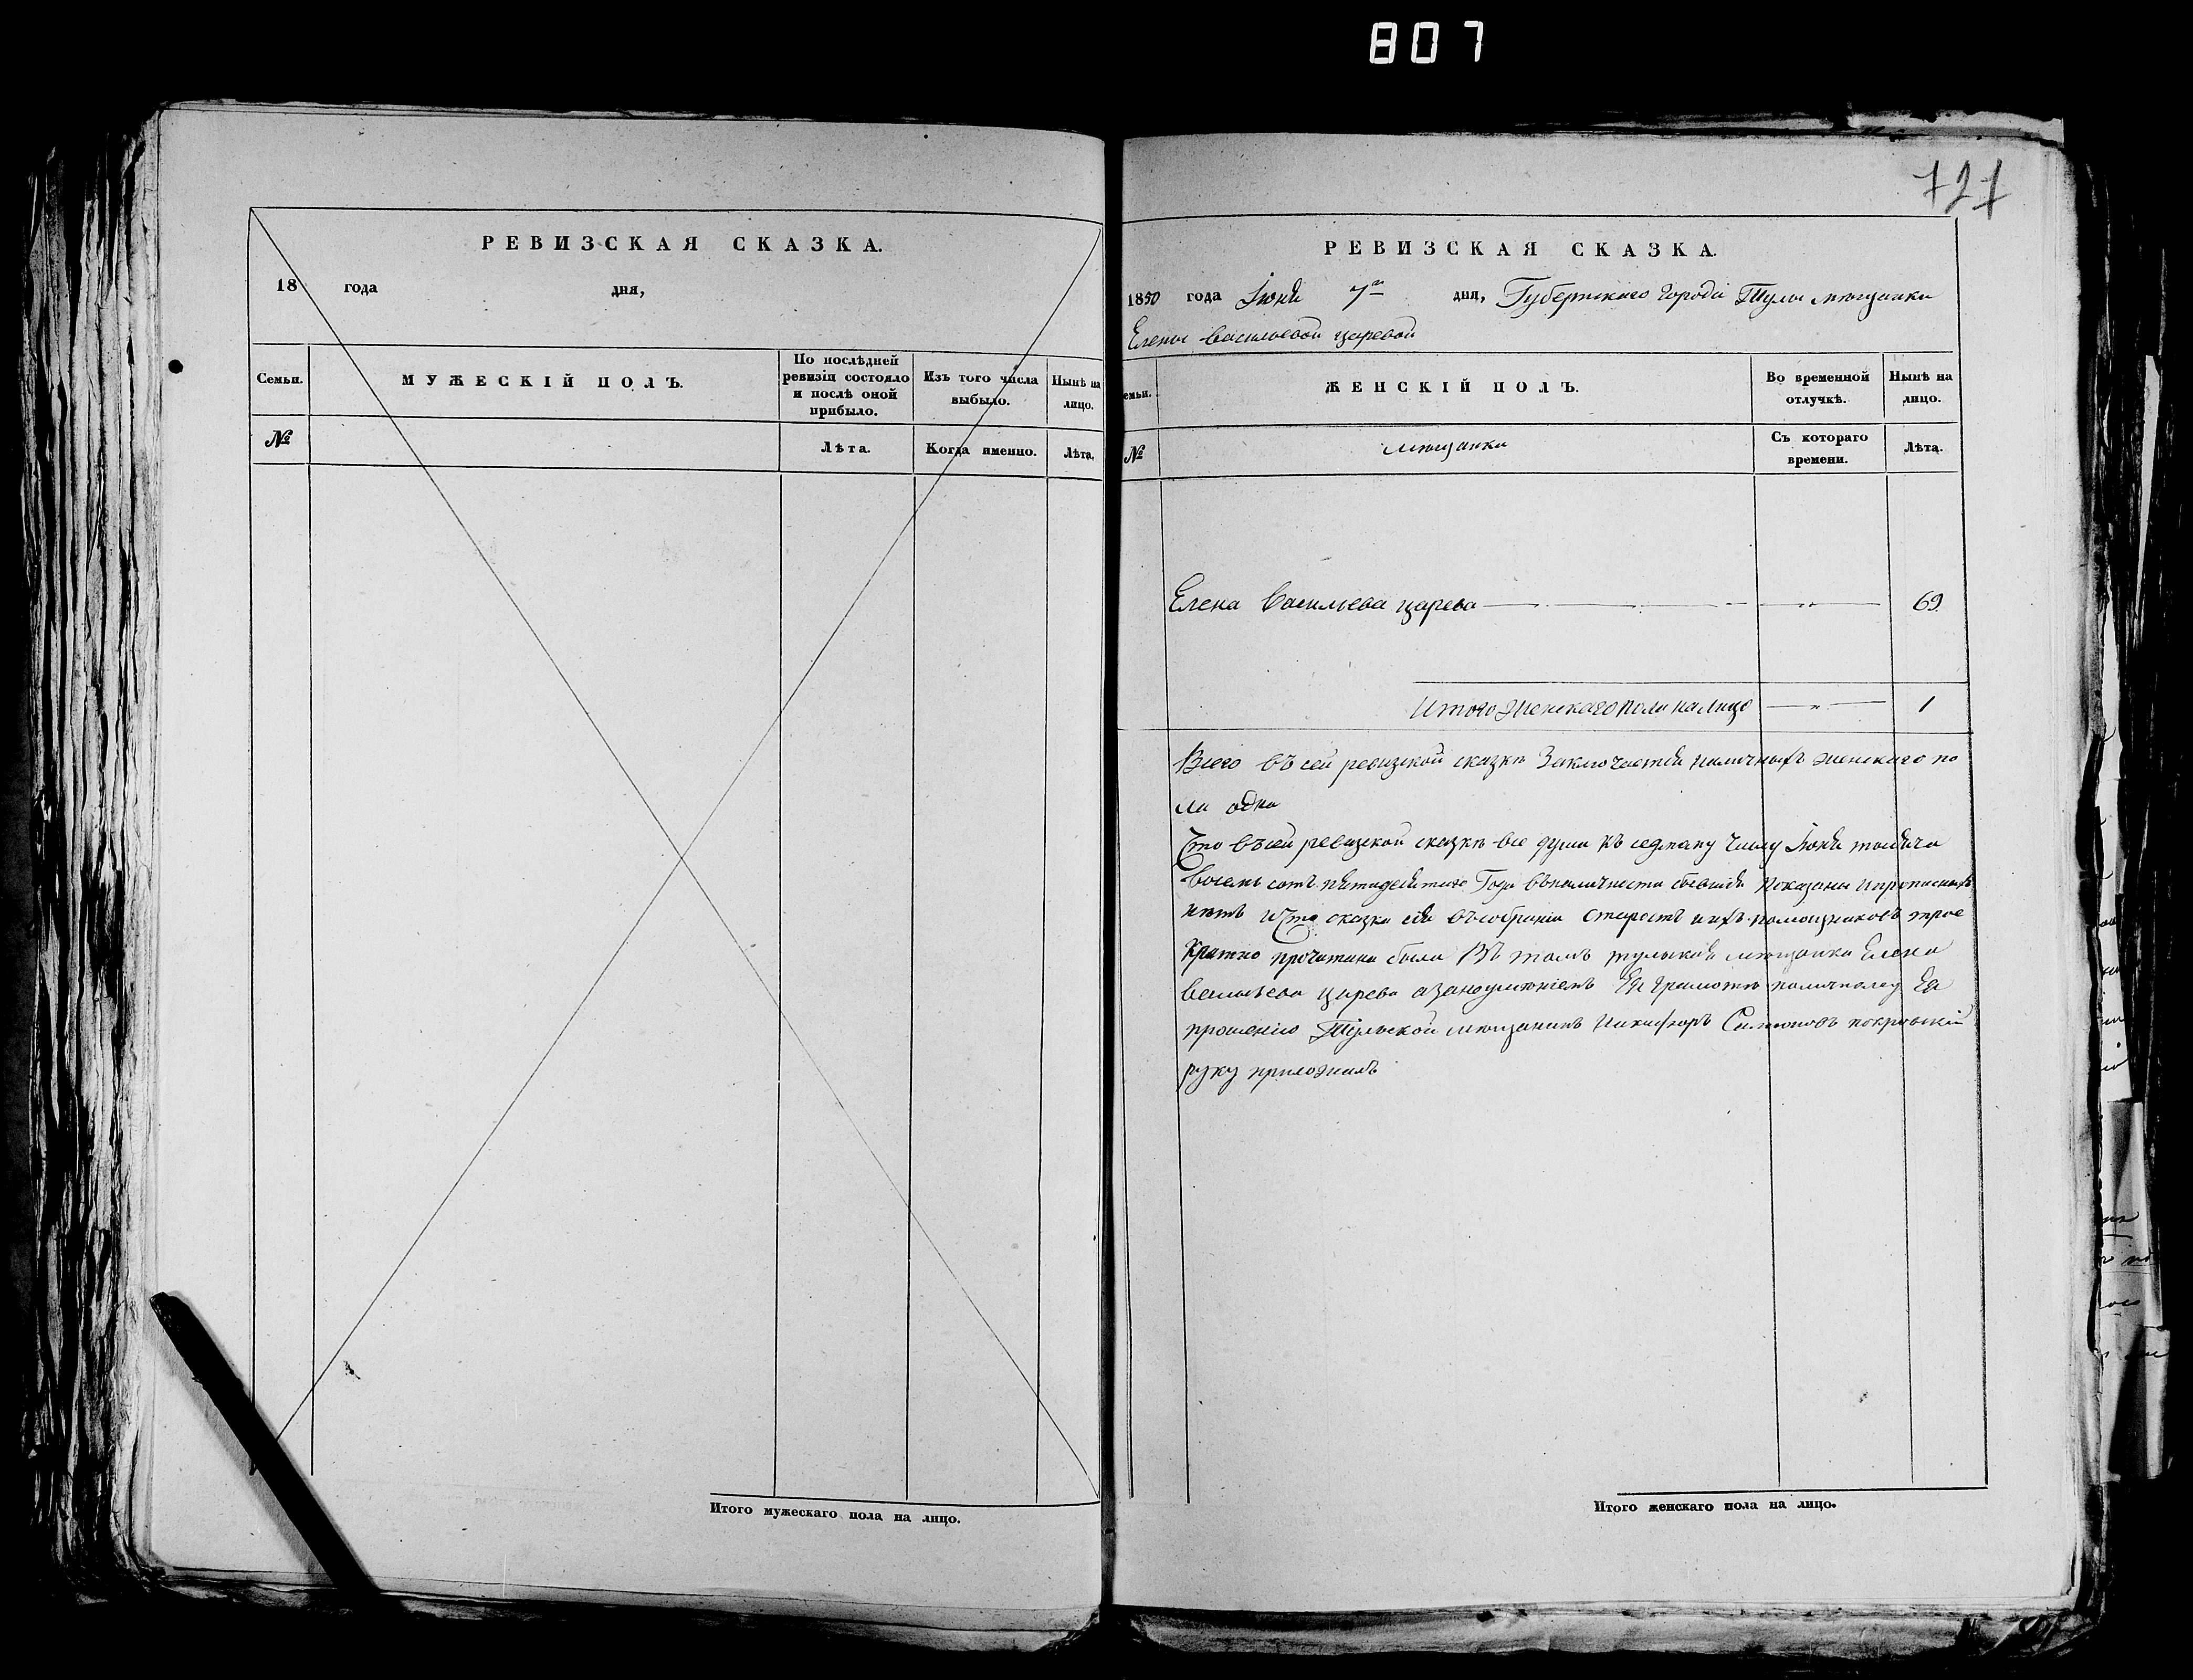 807
РЕВИЗСКАЯ СКАЗКА.
18 года дня,
Семьи.
МУЖЕСКІЙ ПОЛЪ.
По послѣдней ревизіи состояло и послѣ оной прибыло.
Изъ того числа выбыло.
Нынѣ на лицо.
№
Лѣта.
Когда именно.
Лѣта.
Итого мужескаго пола на лицо.
727
РЕВИЗСКАЯ СКАЗКА.
1850 года Іюня 7го дня, Губернскаго города Тулы мѣщанки
Елены Васильевой царевой
емьи.
ЖЕНСКІЙ ПОЛЪ.
Во временной отлучкѣ.
Нынѣ на лицо.
№
мѣщанки
Съ котораго времени.
Лѣта.
Елена Васильева царева — „ — 69
Итого женскаго пола налицо — „ — 1
Всего въ сей ревизской сказкѣ Заключается наличныхъ женскаго по
ла одна
Что въсей ревизской сказкѣ все души къ седмому числу Іюня тысяча
восемь сотъ пятидесятаго Года въналичности бывшія показаны ипрописныхъ
нѣтъ ичто сказка сія въсобраніи старостъ иихъ помощниковъ трое
кратно прочитана была Въ томъ тульская мѣщанка Елена
васильева царева азанеумѣніемъ Ея грамотѣ поличному Ея
прошенію Тульской мѣщанинъ Никифоръ покровский
руку приложилъ
Итого женскаго пола на лицо.